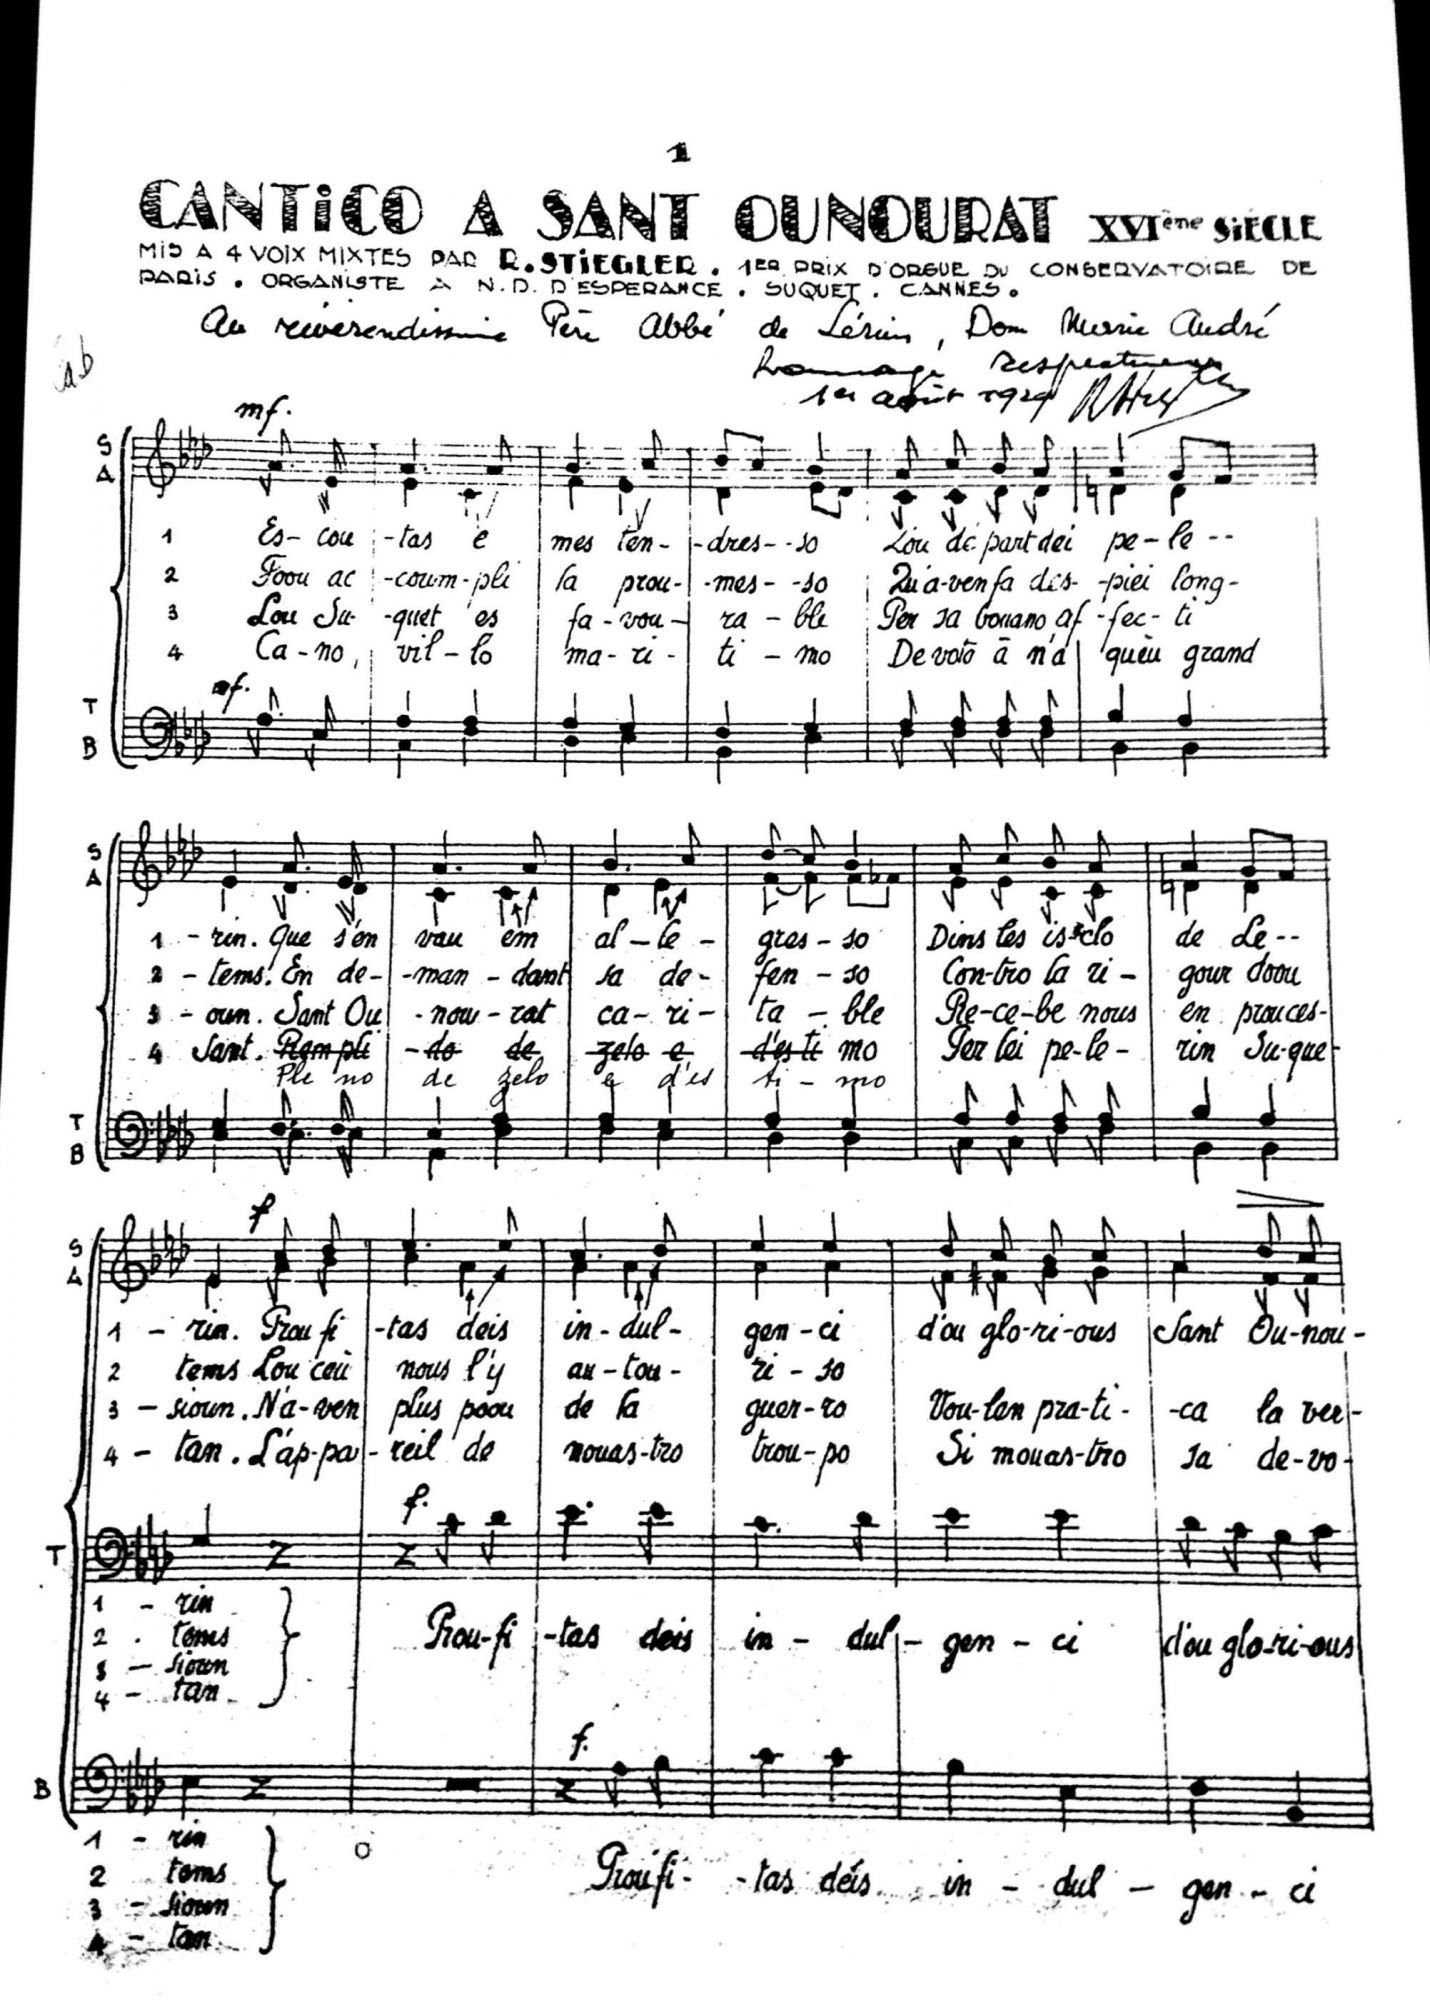 1
CANTiCO A SANT OUNOURAT XVIème SIÈCLE
MIS A 4 VOIX MIXTES PAR R. STIEGLER. 1ER PRIX D'ORGUE DU CONSERVATOIRE DE
PARIS. ORGANISTE A N.D. D'ESPERANCE. SUQUET. CANNES.
Au révérendissime Père Abbé de Lérins, Dom Marie André
hommage respectueux
1er août
mf.
S
A
1 Es- cou -tas e mes ten- -dres- -so Lou de part dei pe-le--
2 Foou ac -coum-pli la prou- -mes- -so Qu'a-ven fa des- -piei long-
3 Lou Su- -quet es fa-vou- ra-ble Per sa bouano af -fec-ti
4 Ca-no, vil-lo ma-ri- ti-mo De voto à n'a quèu grand
mf.
T
B
S
A
1 -rin. Que s'en vau em al-le- gres-so Dins les is-clo de Le--
2 -tems. En de- -man-dant sa de- fen-so Con-tro la ri- gour doou
3 -oun. Sant Ou -nou-rat ca-ri- ta-ble Re-ce-be nous en prouces-
4 Sant. Rem pli -do de zelo e d'es ti mo Per lei pe-le- rin Su-que-
Ple no de zelo e d'es ti-mo
T
B
f
S
A
1 -rin. Prou fi -tas deis in-dul- gen-ci d'ou glo-ri-ous Sant Ou-nou-
2 tems Lou ceù nous l'y au-tou- ri-so
3 -sioun. N'a-ven plus poou de la guer-ro Vou-len pra-ti- -ca la ver-
4 -tan. L'ap-pa- -reil de nouas-tro trou-po Si mouas-tro sa de-vo-
f.
T
1 -rin
2 . tems
3 -sioun
4 -tan
Prou-fi -tas deis in-dul-gen-ci d'ou glo-ri-ous
f.
B
1 -rin
2 tems
3 -sioun
4 -tan
Proufi- -tas déis in-dul-gen-ci